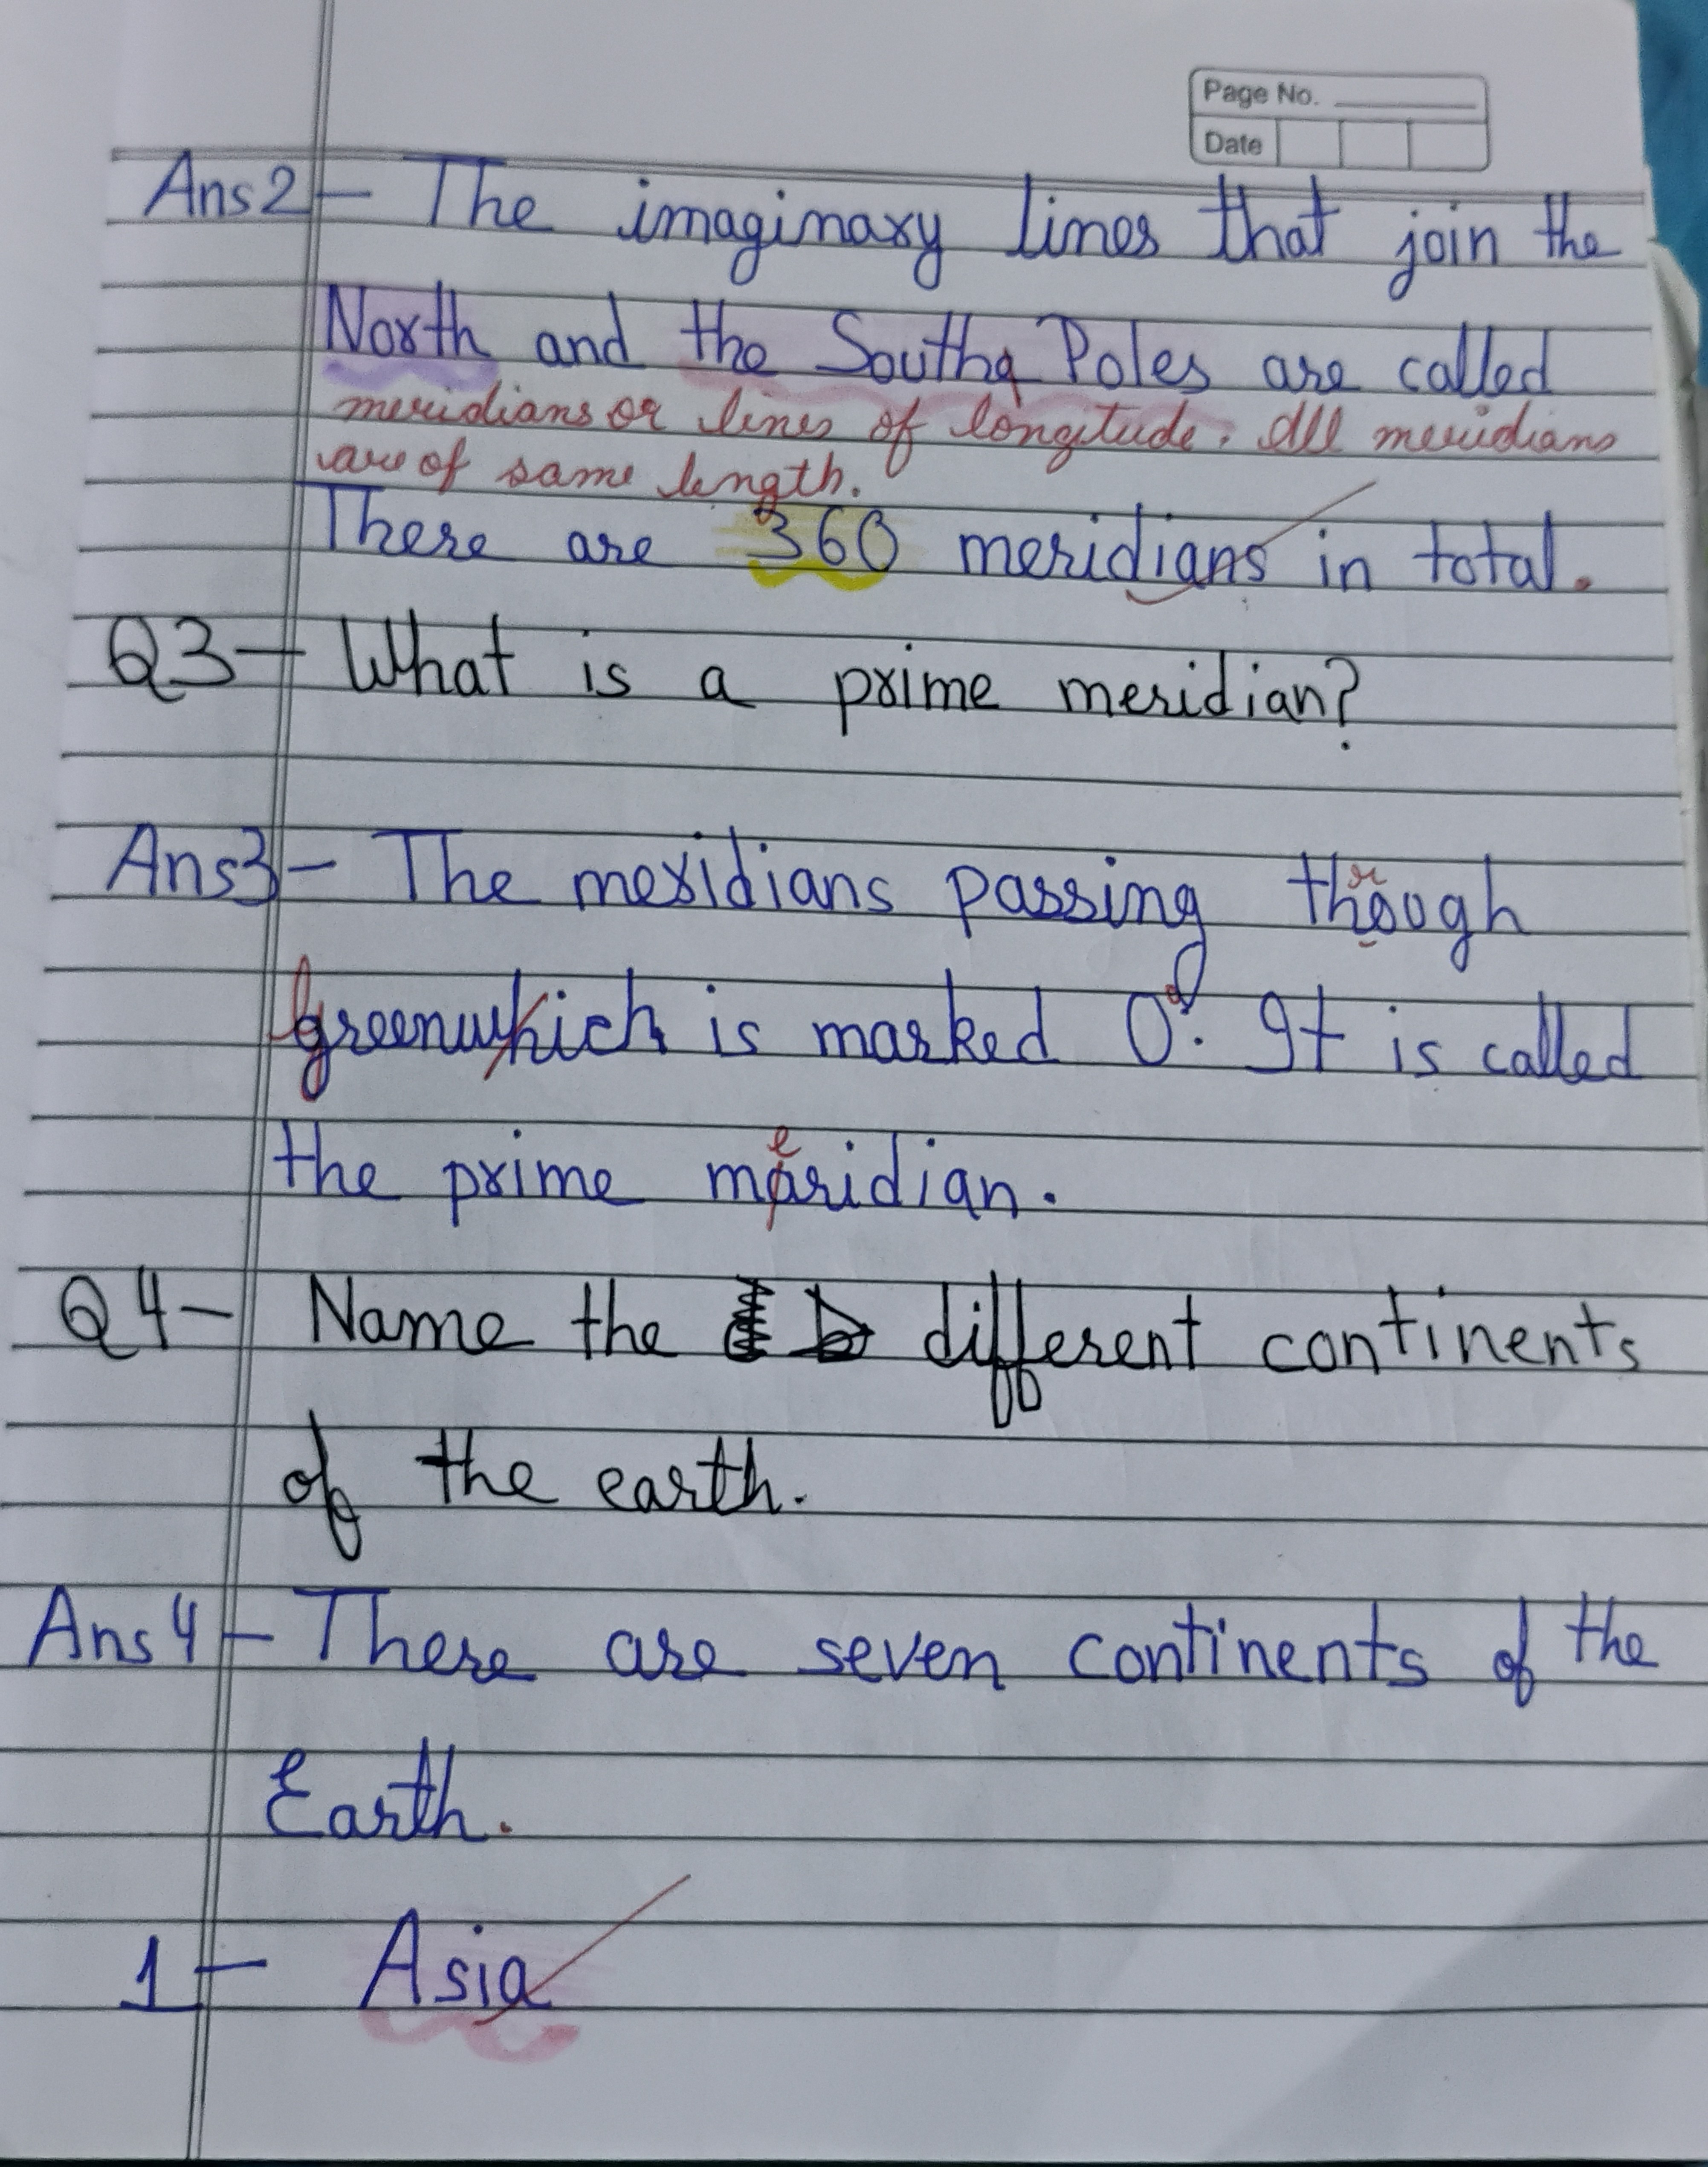 Page No.
Date
Ans2- The imaginary lines that join the
North and the South Poles are called
meridians or lines of longitude. All meridians
are of same length.
There are 360 meridians in total.
Q3- What is a prime meridian?
Ans3- The meridians passing though
r
greenwhich is marked 0°. It is called
e
the prime maridian.
Q4- Name the different continents
of the earth.
Ans4- There are seven continents of the
Earth.
1- Asia